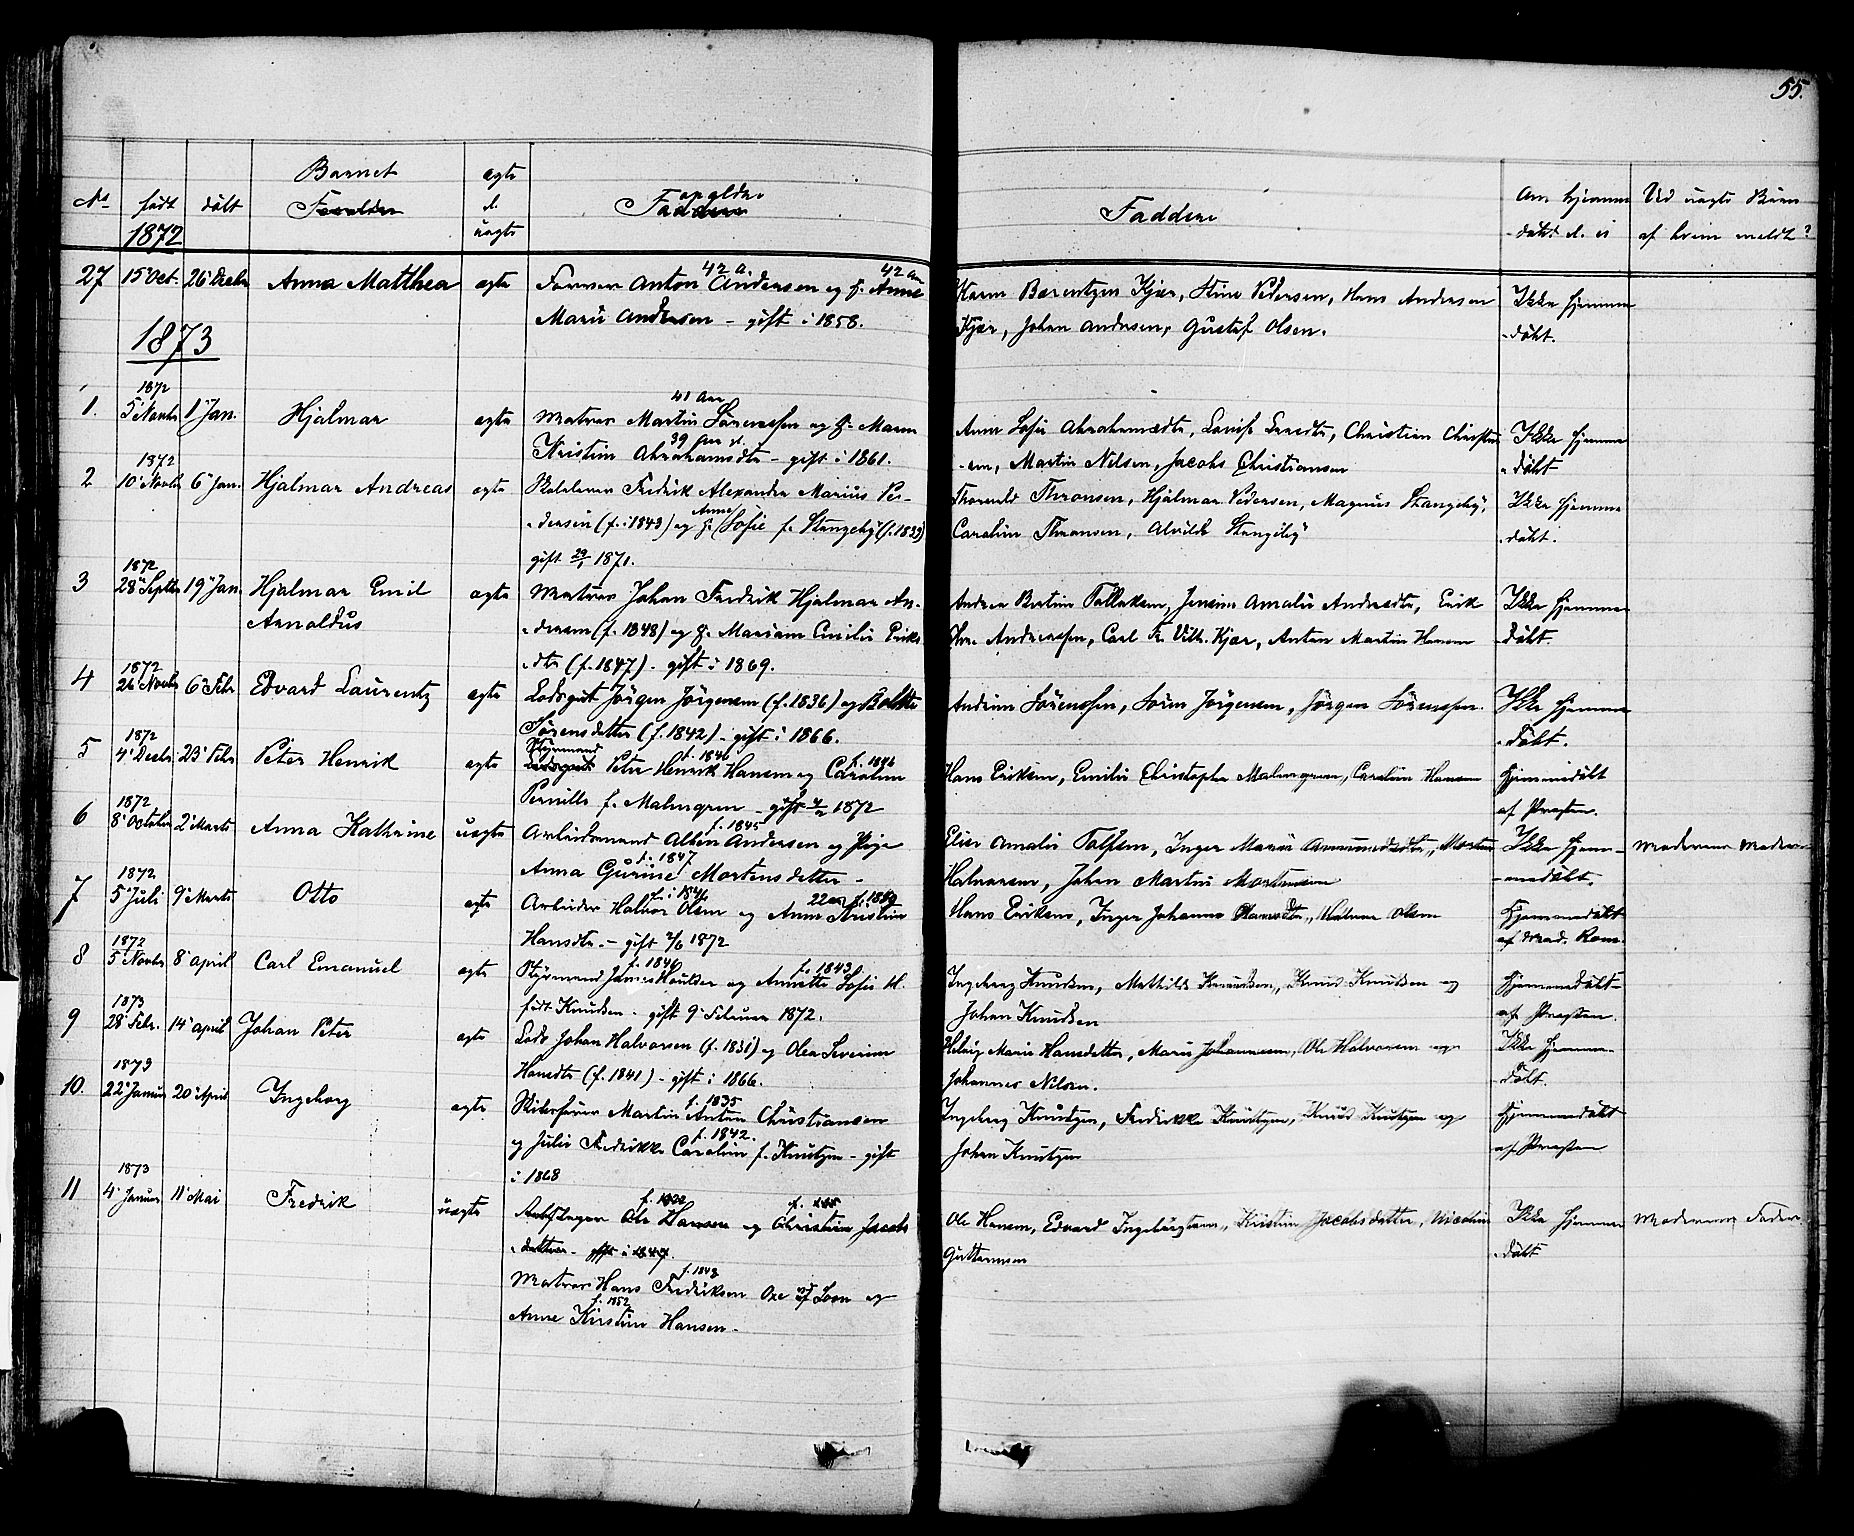 55.
No født døbt Barnet ægte Forældre Faddere Om hjemme Ved uægte Børn
el. uægte -døbt el. ei af hvem meldt?
1872
27 15 Oct. 26 Decbr Anna Matthea ægte Farver Anton Andersen og H. Anne
42 A. 42 Aar
Marie Andersen - gift i 1858.
Karen Berentzen Kjær, Stine Pedersen, Hans Andersen
Kjær, Johan Andersen, Gustaf Olsen.
Ikke hjemme
-døbt.
1873
1872
1. 5 Novbr 1 Jan. Hjalmar ægte Matros Martin Sørenssen og H. Maren
41 Aar
Kristine Abrahamsdtr - gift i 1861.
39 Aar
Anne Sofie Abrahamsdtr, Lovise, Christian Christian
-sen, Martin Nilsen, Jacob Christiansen
Ikke hjemme
-døbt
1872
2 10 Novbr 6 Jan. Hjalmar Andreas ægte Fredrik Alexander Marius Pe-
-dersen (f. i 1843) og H. Anne Sofie f. Stangeby
gift 29/1 1871.
Thorvald Thronsen, Hjalmar Pedersen, Magnus Stangeby,
Caroline Thronsen, Alvilde Stangeby
Ikke hjemme
-døbt.
1872
3 28 Septbr 19 Jan. Hjalmar Emil ægte Matros Johan Fredrik Hjalmar An-
Arnoldus
-dersen (f. 1848) og H. Mariam Emilie Eriks
-dtr (f. 1847) - gift i 1869.
Andrea Bertine Tollaksen, Jensine Amalie Andersdtr, Erik
Chr. Andreassen, Carl Fr. Vilh. Kjær, Anton Martin Hansen
Ikke hjemme
-døbt.
1872
4 26 Novbr 6 Febr Edvard Laurentz ægte Lodsgut Jørgen Jørgensen (f. 1836) og Bolette
Sørensdatter (f. 1842) - gift i 1866.
Andrine Sørenssen, Søren Jørgensen, Jørgen Sørenssen.
Ikke hjemme
-døbt.
1872
5 4 Decbr 23 Febr Peter Henrik ægte Styrmand Lodsgut Peter Henrik Hansen og Caroline
f. 1846 f. 1846
Pernille f. Malmgren - gift 1872
Hans Eriksen, Emilie Christophe Malmgren, Caroline Hansen
Hjemmedøbt
af Præsten.
1872
6 8 October 2 Marts Anna Kathrine uægte Arbeidsmand Albin Andersen og Pige
f. 1845
Anna Gurine Mortensdatter -
f. 1847
Elise Amalie Tolfsen, Inger Marie Amundsdtr, Morten
Halvorsen, Johan Martin Mortensen
Ikke hjem-
-medøbt.
Moderens Moder
1872
7 5 Juli 9 Marts Otto ægte Arbeider Halvor Olsen og Anne Kristine
f. i 1846
Hansdtr. - gift 2/6 1872
Hans Eriksen, Inger Johanne Hansdtr, Halvor Olsen
Hjemmedøbt
af Mad. Rom.
1872
8 5 Novbr 8 April Carl Emanuel ægte Styrmand James Houlder og Annette Sofie H.
f. 1846 f. 1843
født Knudsen - gift 9 Februar 1872.
Ingeborg Knudsen, Mathilde Knudsen, Knud Knudsen og
Johan Knudsen
Hjemmedøbt
af Præsten.
1873
9 28 Febr. 14 April Johan Peter ægte Lods Johan Halvorsen (f. 1831) og Olea Severine
Hansdtr (f. 1841) - gift i 1866.
Helvig Marie Hansdatter, Marie Johannesen, Ole Halvorsen og
Johannes Nilsen.
Ikke hjemme-
-døbt.
1873
10. 22 Januar 20 April Ingeborg ægte Skibsfører Martin Anton Christiansen
f. 1835
og Julie Fredrikke Caroline f. Knutzen - gift
f. 1842.
i 1868
Ingeborg Knutzen, Fredrikke Knutzen, Knud Knutzen og
Johan Knutzen
Hjemmedøbt
af Præsten
1873
11 4 Januar 11 Mai Fredrik uægte Ole Hansen og Christine Jacobs
-datter - gift i 1847.
Matros Hans Fredriksen Oxe af Soon og
f. 1843
Anne Kirstine Hansen.
f. 1852
Ole Hansen, Edvard Ingebrigtsen, Kristine Jacobsdatter, Nicoline
Guttormsen
Ikke hjemme
-døbt
Moderens Fader